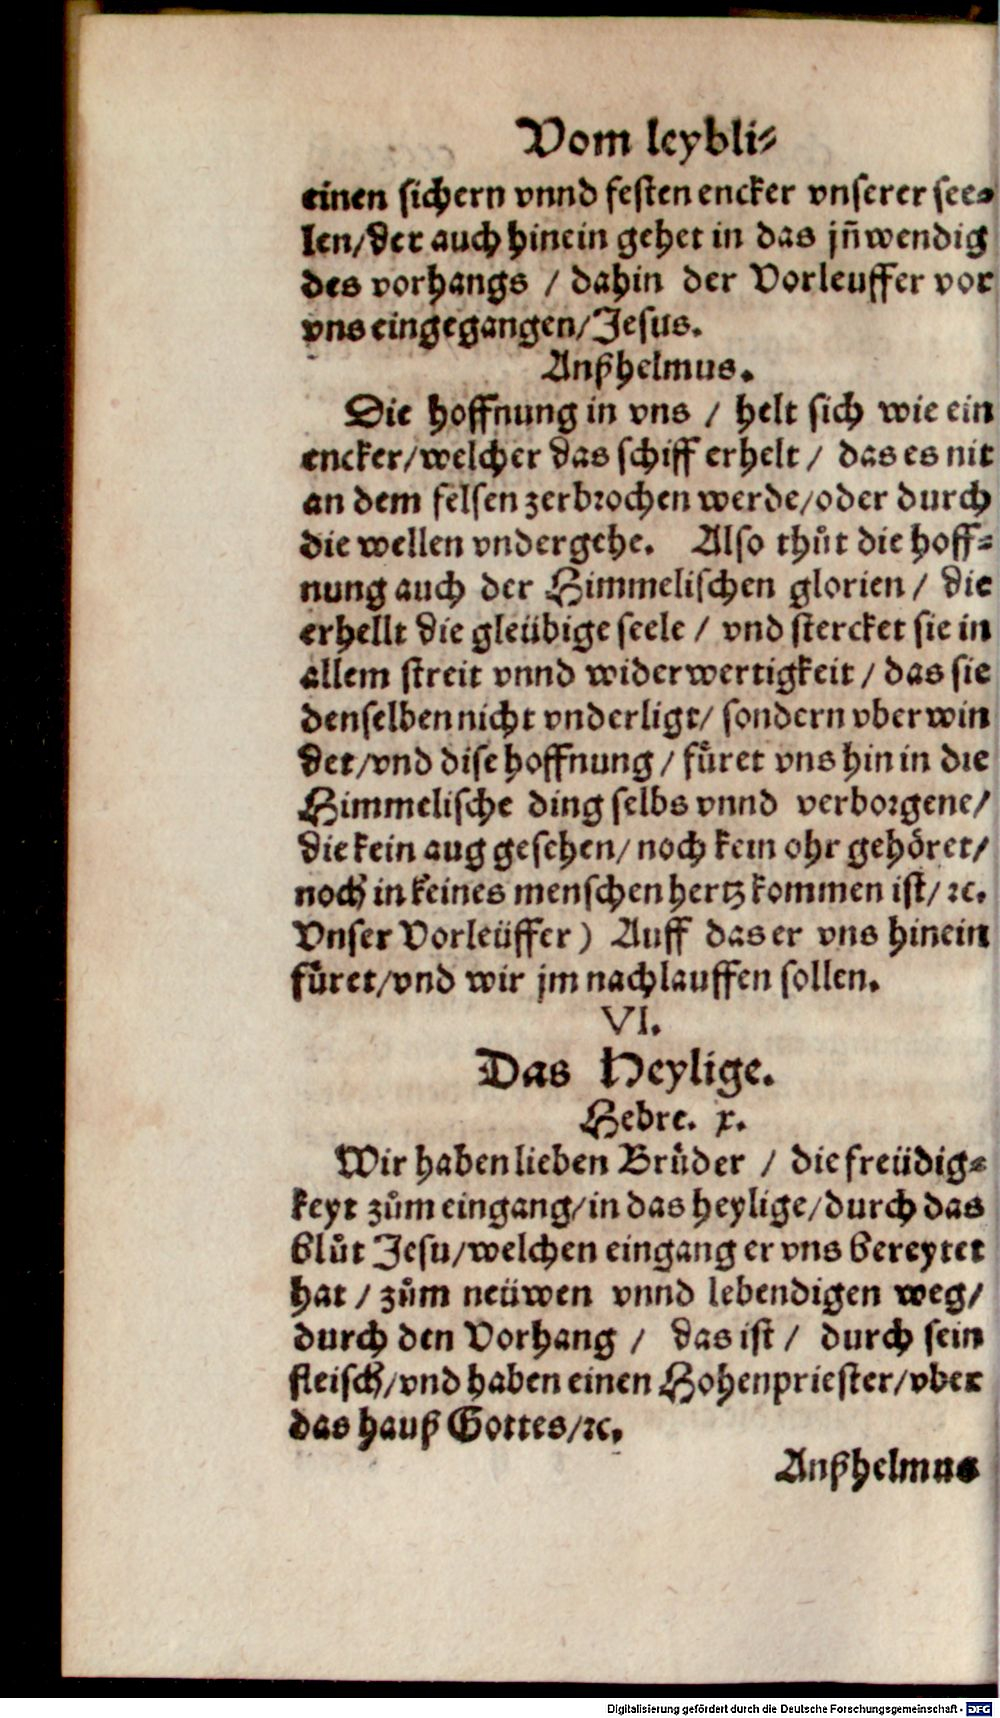 Vom leybli⸗
einen sichern vnnd festen encker vnserer see⸗
len/der auch hinein gehet in das jñwendig
des vorhangs / dahin der Vorleuffer vor
vns eingegangen/Jesus.
Anßhelmus.
Die hoffnung in vns / helt sich wie ein
encker/welcher das schiff erhelt / das es nit
an dem felsen zerbrochen werde/oder durch
die wellen vndergehe. Also thůt die hoff⸗
nung auch der Himmelischen glorien / die
erhellt die gleübige seele / vnd stercket sie in
allem streit vnnd widerwertigkeit / das sie
denselben nicht vnderligt/ sondern vberwin
det/vnd dise hoffnung / fuͤret vns hin in die
Himmelische ding selbs vnnd verborgene/
die kein aug gesehen/ noch kein ohr gehoͤret/
noch in keines menschen hertz kommen ist/ ꝛc.
Vnser Vorleüffer) Auff das er vns hinein
fuͤret/vnd wir jm nachlauffen sollen.
VI.
Das Heylige.
Hebre. x.
Wir haben lieben Bruͤder / die freüdig⸗
keyt zům eingang/in das heylige/durch das
blůt Jesu/welchen eingang er vns bereytet
hat / zům neüwen vnnd lebendigen weg/
durch den Vorhang / das ist / durch sein
fleisch/vnd haben einen Hohenpriester/vber
das hauß Gottes/ꝛc.
Anßhelmus
Digitalisierung gefördert durch die Deutsche Forschungsgemeinschaft - DFG